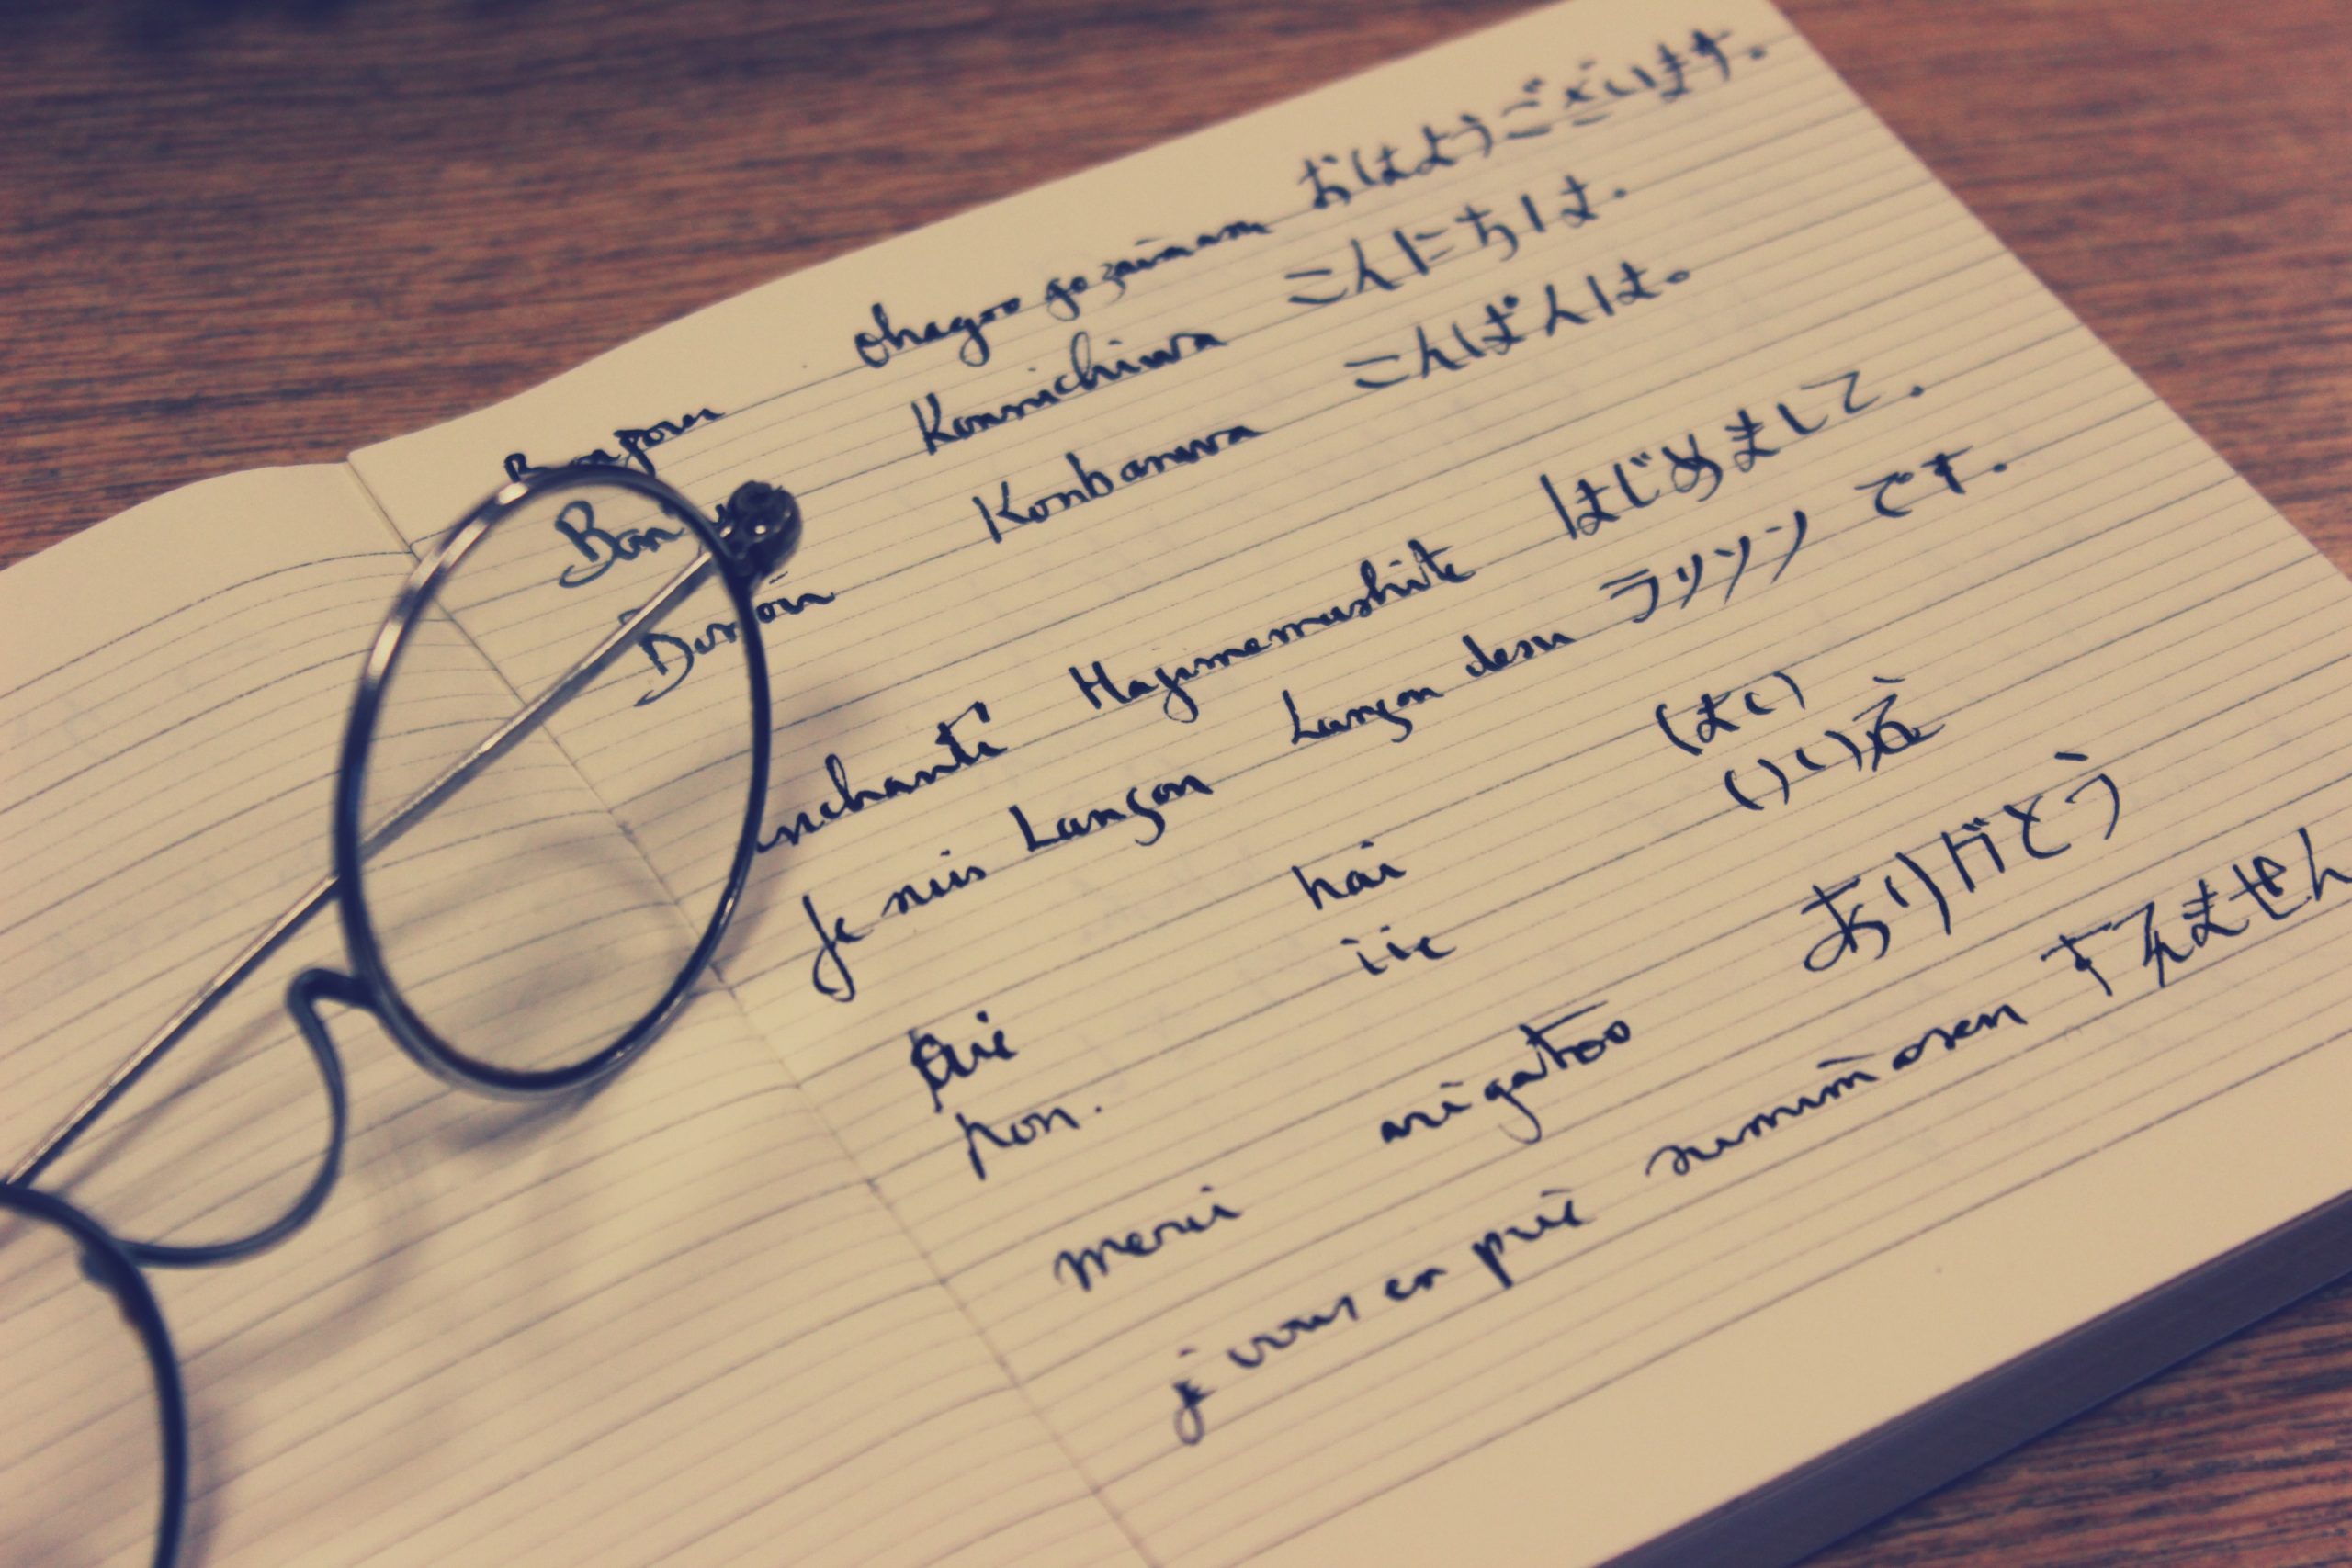 Bonjour ohayoo gozaimasu おはようございます.
Bonj Konnichiwa こんにちは.
Bonsoir Konbanwa こんばんは。
nchanté Hagimemashite はじめまして.
Je suis Lançon Lançon desu ランソン です.
Oui hai はい
non. iie いいえ
merci arigatoo ありがとう
j vous en prie sumimasen すみません